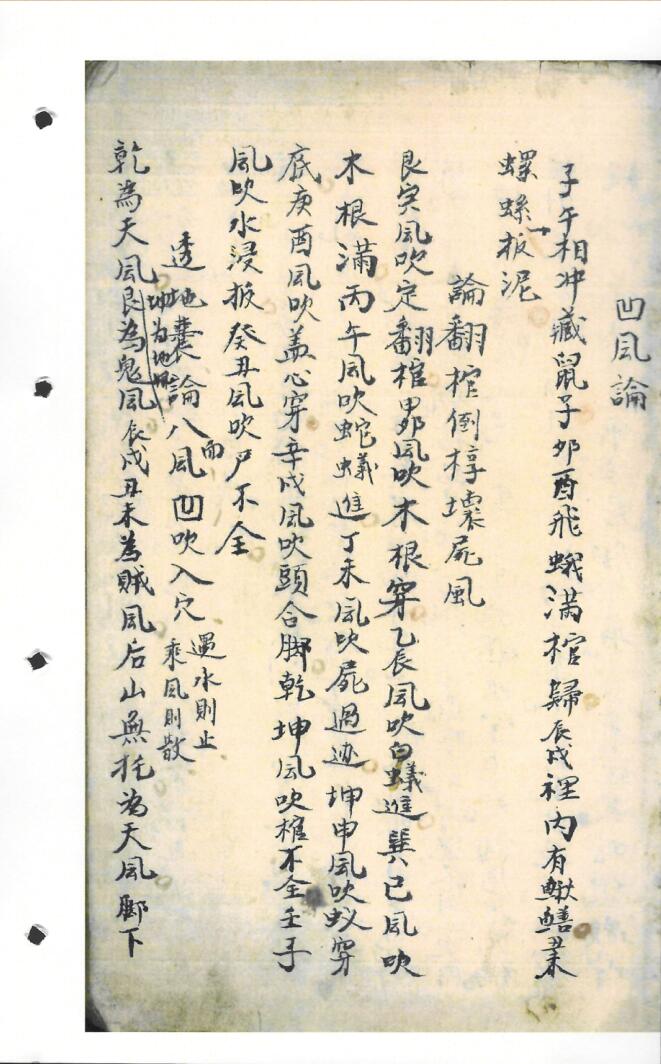 凹风論
子午相冲藏鼠子卯酉飛蛾满棺歸辰戌裡内有鰍鱔
螺螄板泥
論翻棺倒椁壞屍風
艮寅风吹定翻棺甲卯风吹木根穿乙辰风吹白蟻進巽巳风吹
木根滿丙午风吹蛇蟻進丁未风吹屍過迹坤申风吹蚁穿
底庚酉风吹盖心穿辛戌风吹頭合脚乾坤风吹棺不全壬子
风吹水浸板癸丑风吹尸不全
透地囊論八面风凹吹入穴遇水則止乘风則散
乾為天风坤为地风艮為鬼风辰戌丑未為賊风后山無托為天风脚下